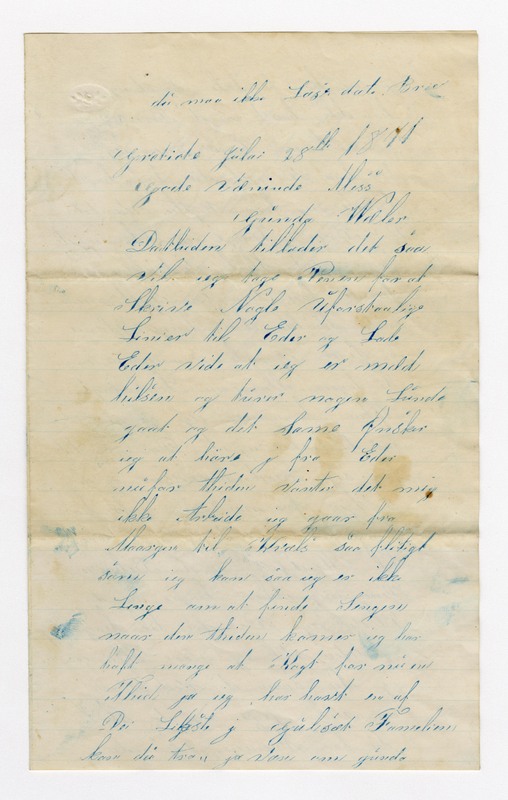 du maa ikke Læse date Brev
Juli 28th 1871
Gode Væninde Miss
Gunda Wæler
Dathiden tillader det saa
vil ieg tage Penen for at
Skrive Nogle Uforstaalige
Linier til Eder og Lade
Eder vide at ieg er meld
hilsen og turer nogen Lunde
gaat og det Same Ønsker
ieg at høre j fra Eder
thiden vanter det mig
ikke Arbeide ieg gaar fra
Maargen til Kvæls saa flitigt
som ieg kan saa ieg er ikke
Lenge om at finde Sengen
naar den thiden komer ieg har
haft mange at Kogt for nu en
thid ja ieg har havt en af
De j Familien
kan du tro ja var om gunda